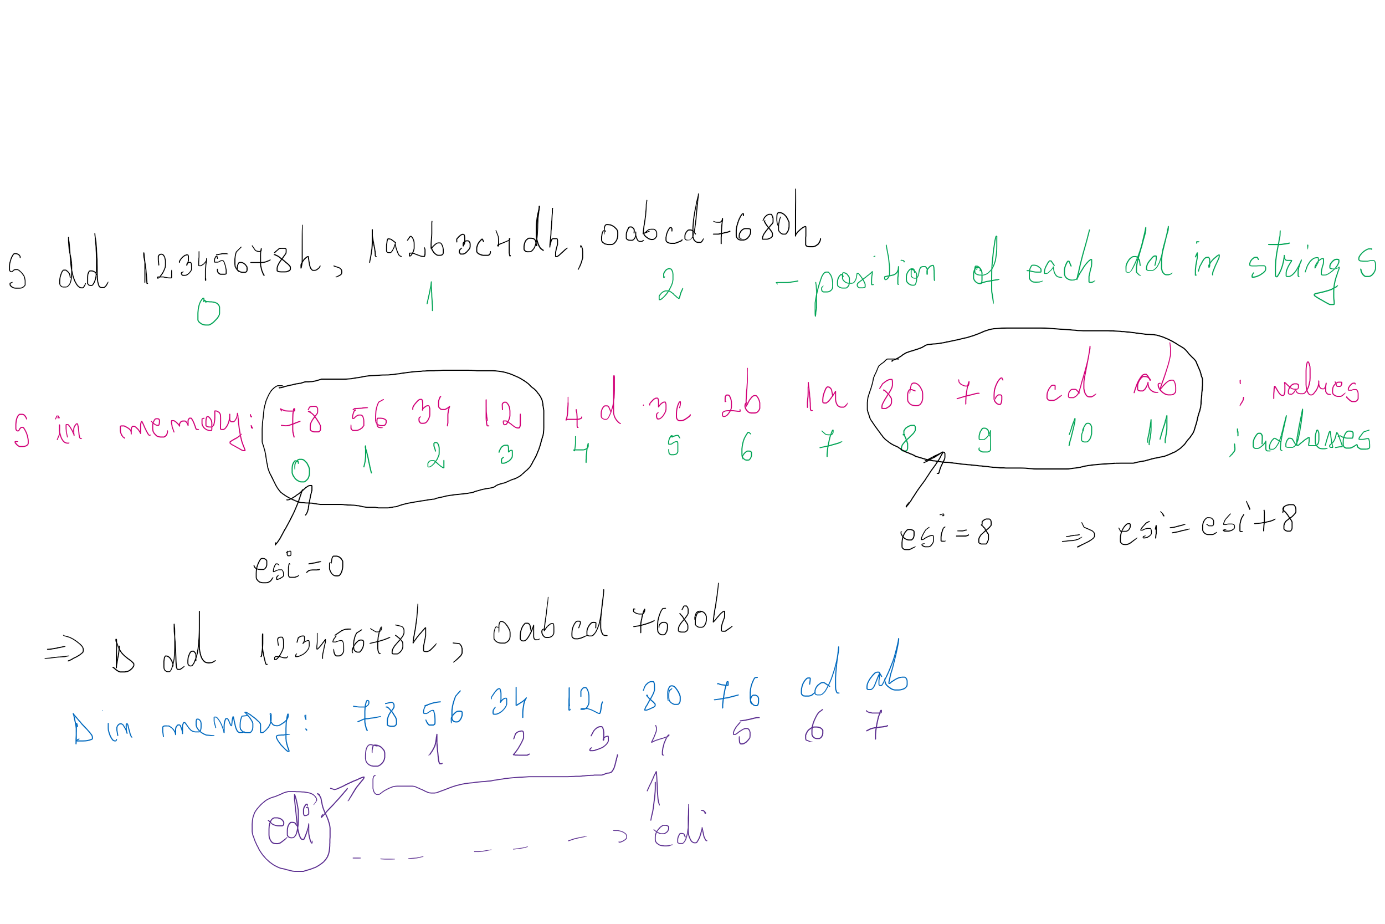 S dd 12345678h, 1a2b3c4dh, 0abcd7680h
0 1 2 - position of each dd in string S
S in memory: 78 56 34 12 4d 3c 2b 1a 80 76 cd ab ; values
0 1 2 3 4 5 6 7 8 9 10 11 ; addresses
esi=0 esi=8 => esi=esi+8
=> D dd 12345678h, 0abcd7680h
D in memory: 78 56 34 12 80 76 cd ab
0 1 2 3 4 5 6 7
edi ----> edi